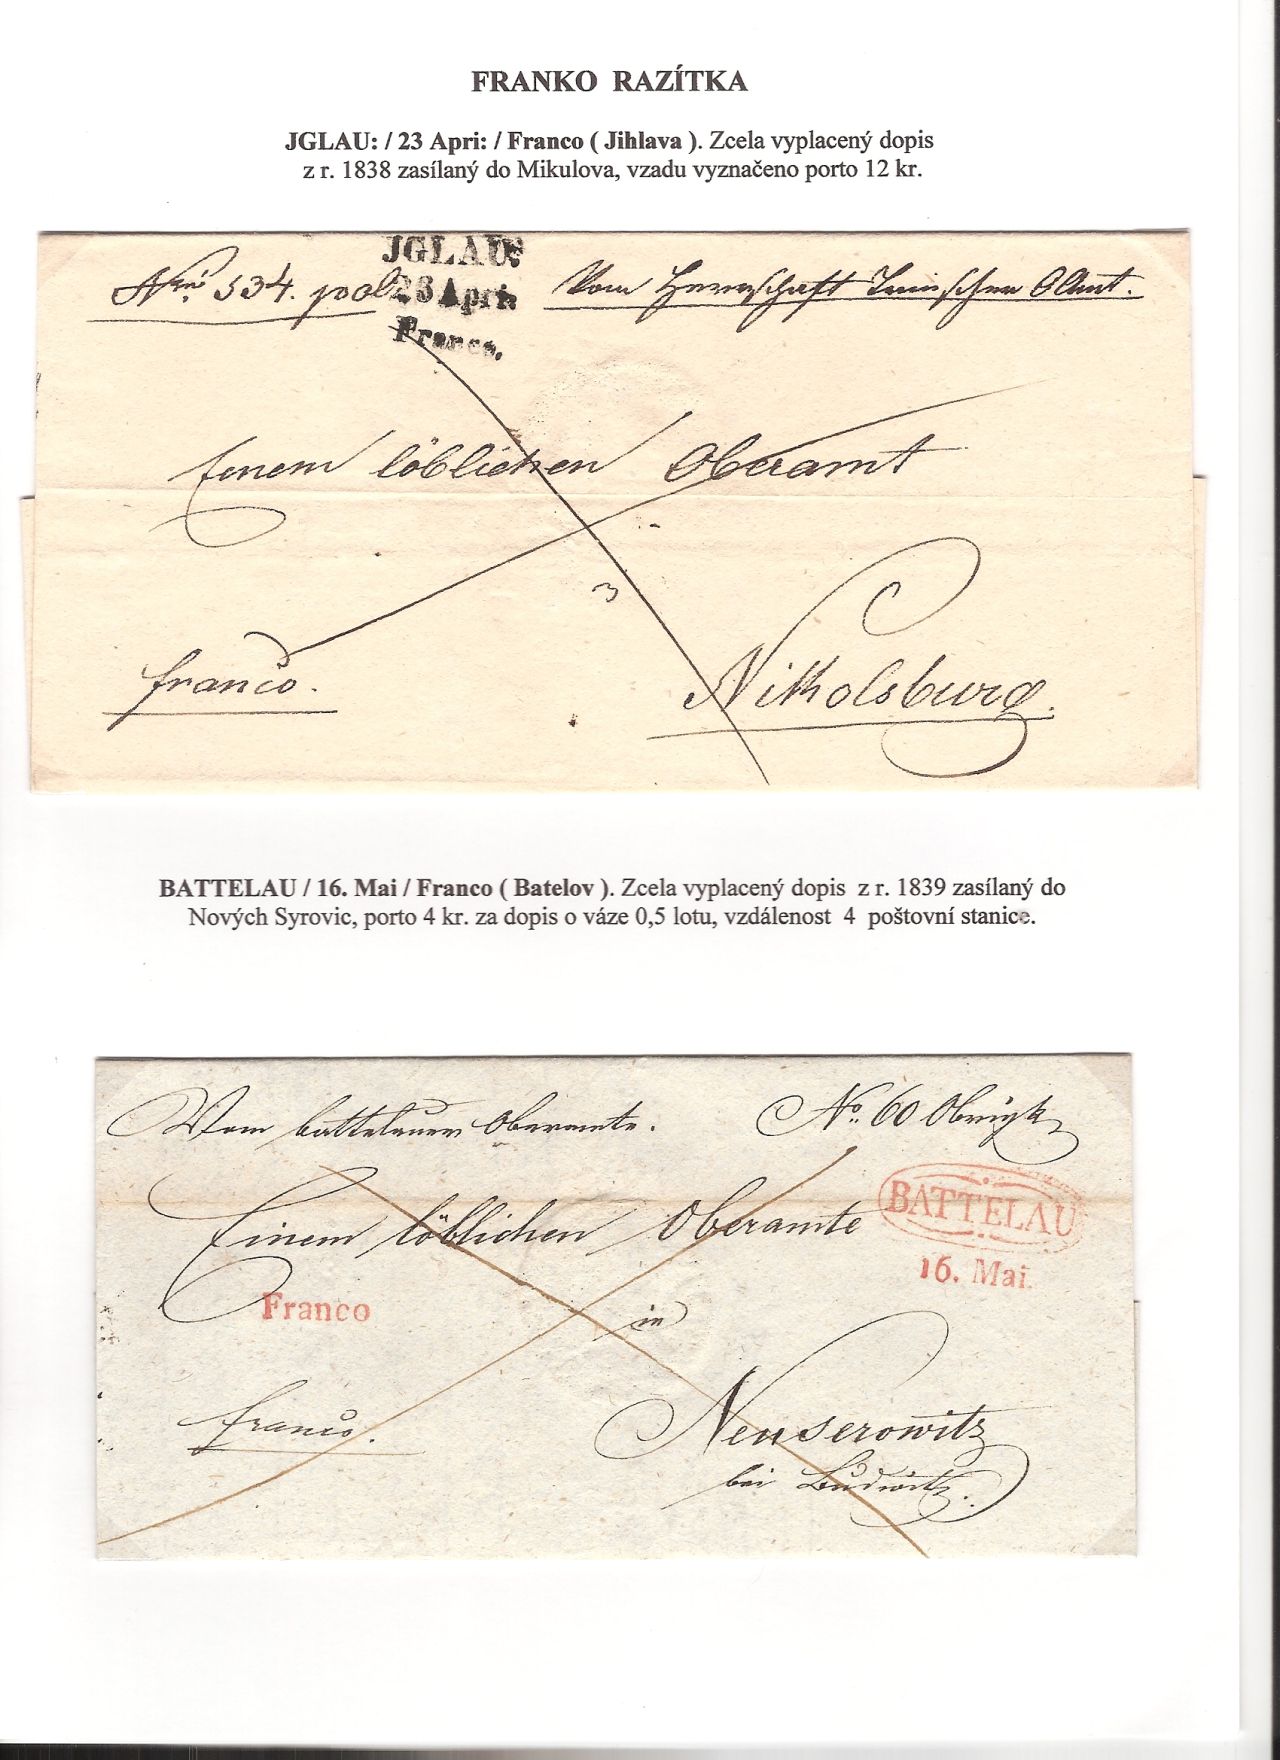 FRANKO RAZÍTKA
JGLAU: / 23 Apri: / Franco ( Jihlava ). Zcela vyplacený dopis
z r. 1838 zasílaný do Mikulova, vzadu vyznačeno porto 12 kr.
JGLAU:
23 Apri:
Franco.
534. pol
Vom Herrschaft
Einem löblichen Oberamt
franco.
Nikolsburg.
BATTELAU / 16. Mai / Franco ( Batelov ). Zcela vyplacený dopis z r. 1839 zasílaný do
Nových Syrovic, porto 4 kr. za dopis o váze 0,5 lotu, vzdálenost 4 poštovní stanice.
Vom battelauer Oberamte.
No. 60
Einem löblichen Oberamte
BATTELAU
16. Mai.
Franco
in
franco.
Neuserowitz
bei Budwitz.